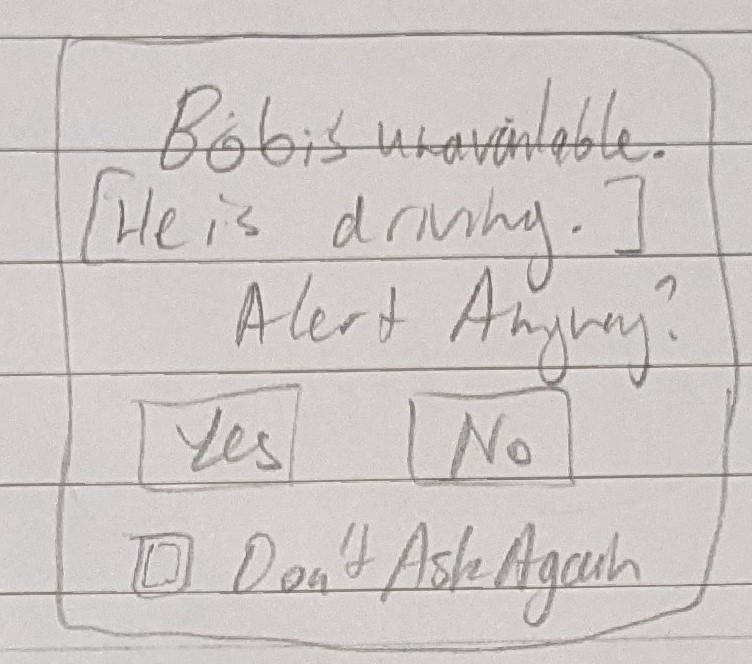 Bob is unavailable.
[He is driving.]
Alert Anyway?
Yes No
Don't Ask Again